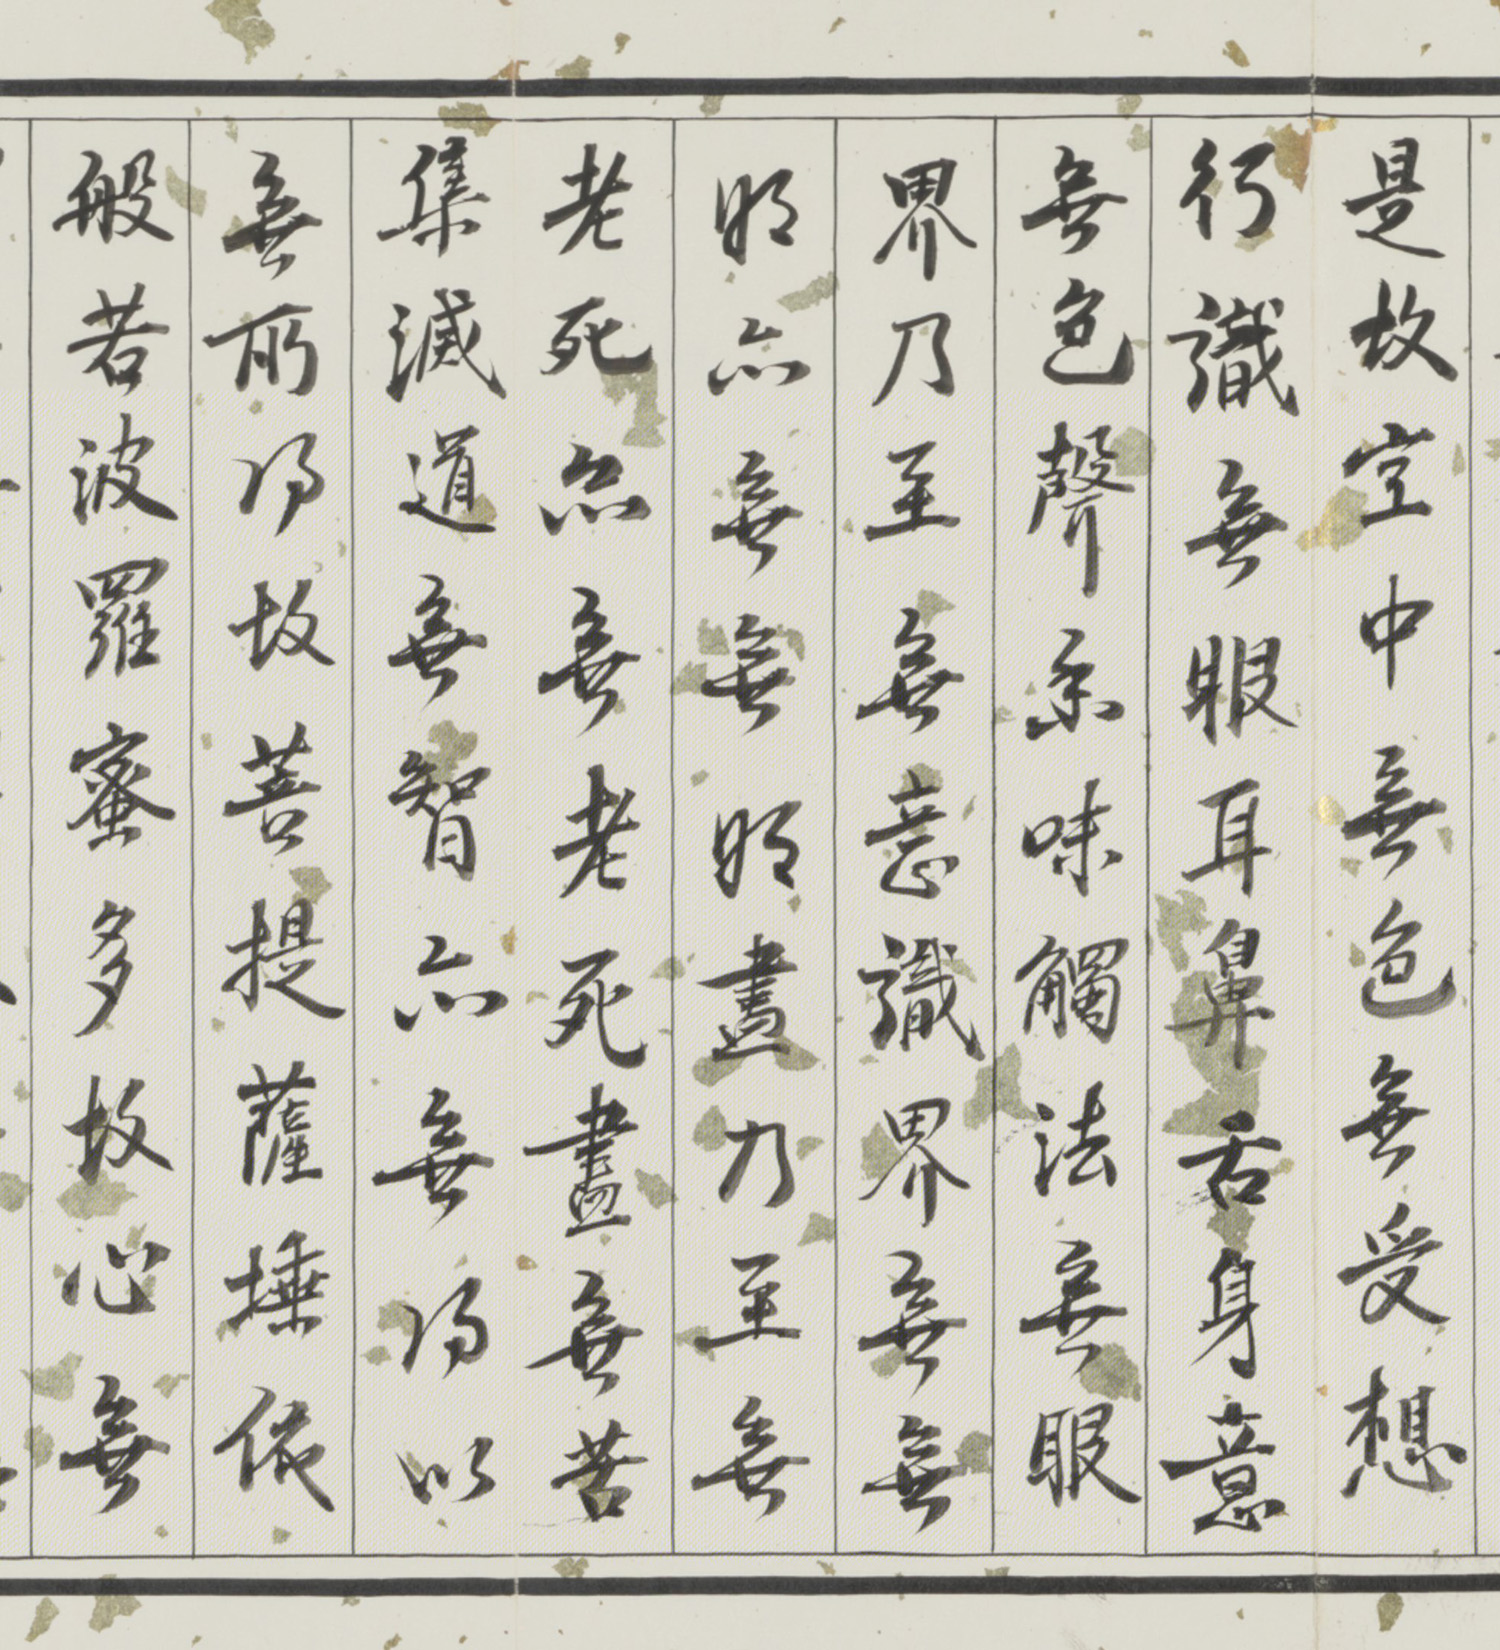 是故空中無色無受想
行識無眼耳鼻舌身意
無色聲香味觸法無眼
界乃至無意識界無無
明亦無無明盡乃至無
老死亦無老死盡無苦
集滅道無智亦無得以
無所得故菩提薩埵依
般若波羅蜜多故心無